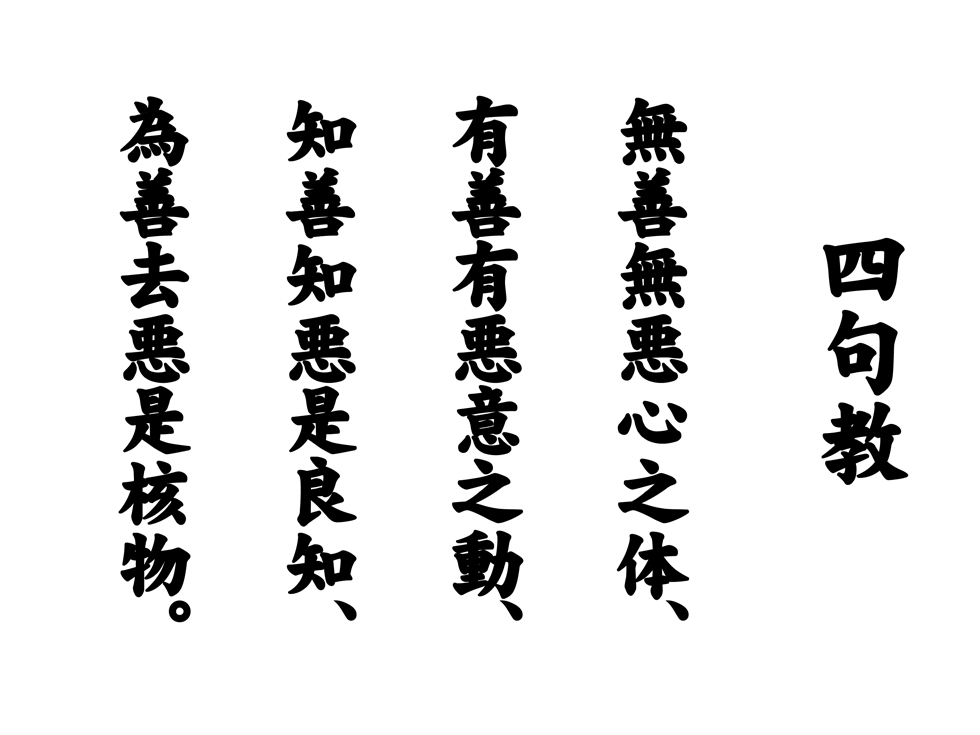 四句教
無善無悪心之体、
有善有悪意之動、
知善知悪是良知、
為善去悪是核物。